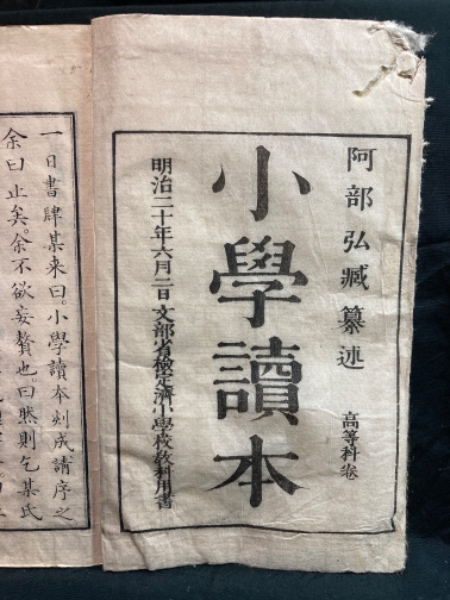 阿部弘臧纂述
高等科卷
小學讀本
明治二十年六月二日文部省檢定濟小學校敎科用書
一日書肆某来曰。小學讀本刻成請序之
余曰止矣。余不欲妄贅也。曰然則乞某氏